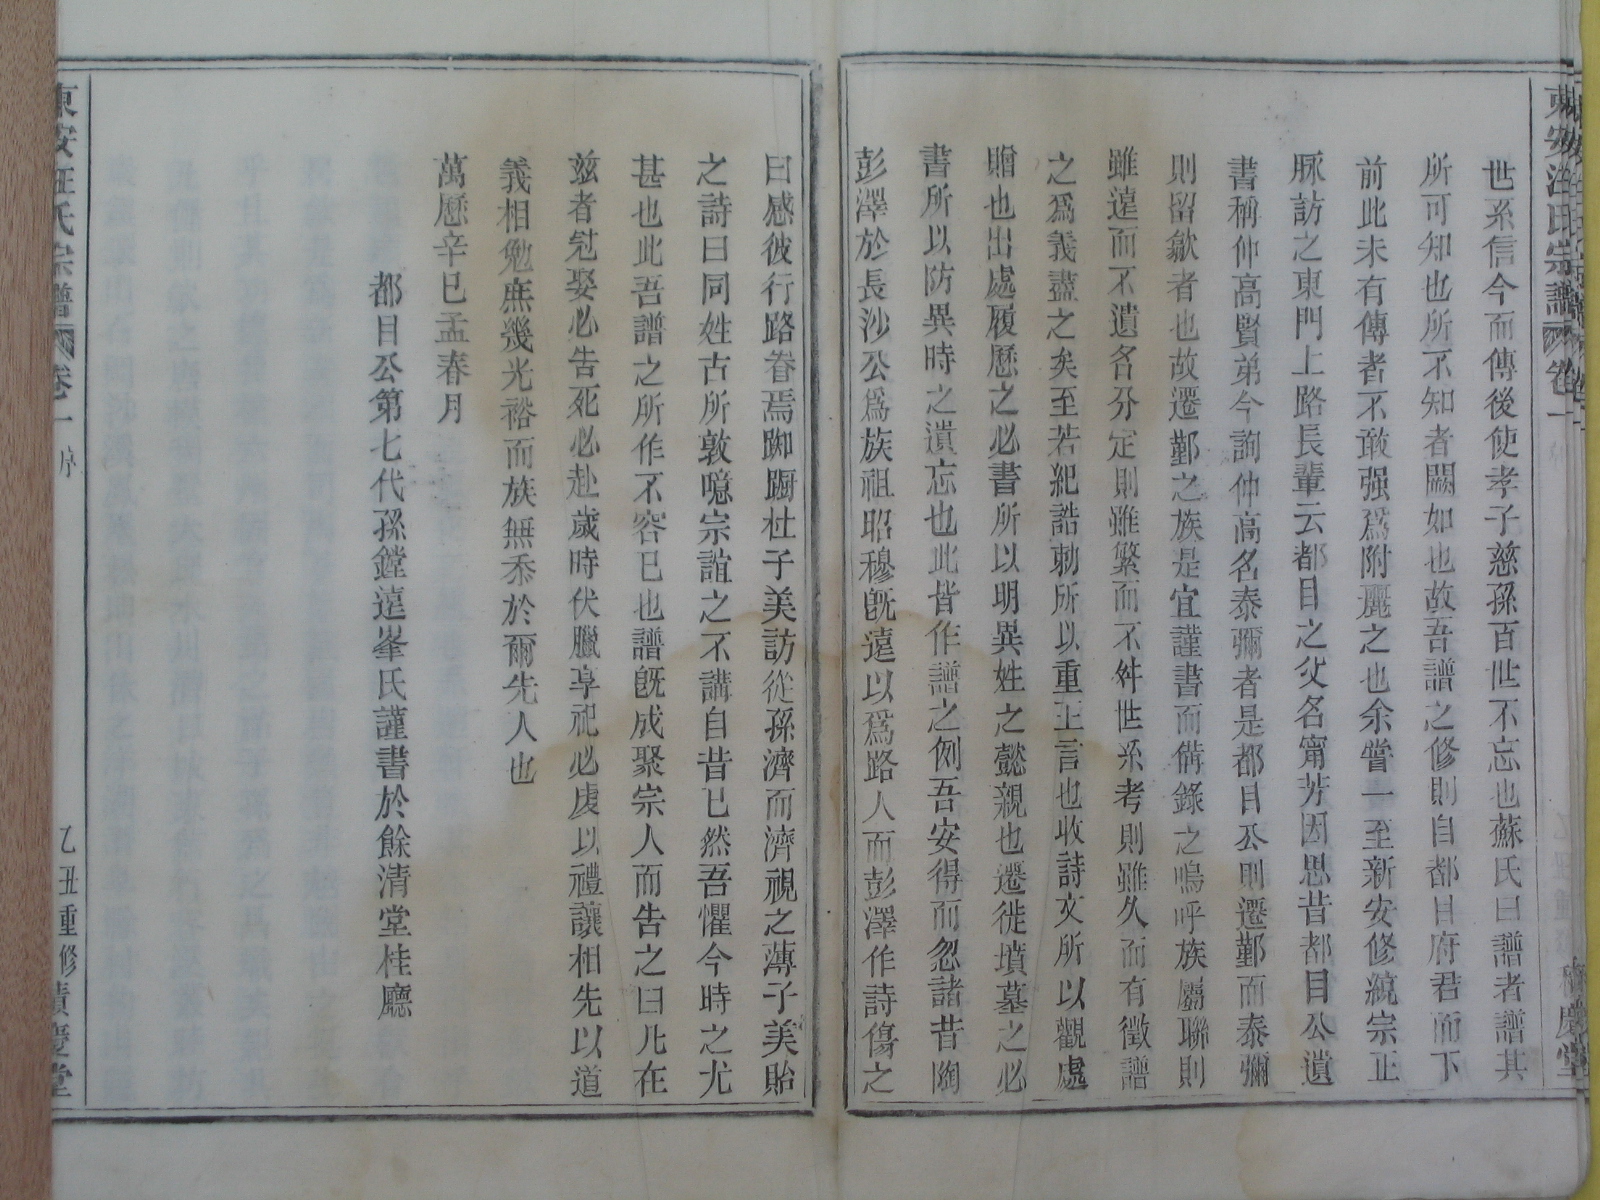 東安汪氏宗譜 卷一 序
積慶堂
世系信今而傳後使孝子慈孫百世不忘也蘇氏曰譜者譜其
所可知也所不知者闕如也故吾譜之修則自都目府君而下
前此未有傳者不敢强爲附麗之也余嘗一至新安修統宗正
脉訪之東門上路長輩云都目之父名甯芳因思昔都目公遺
書稱仲高賢弟今詢仲高名泰彌者是都目公則遷鄞而泰彌
則留歙者也故遷鄞之族是宜謹書而備錄之嗚呼族屬聯則
雖遠而不遺名分定則雖繁而不舛世系考則雖久而有徵譜
之爲義盡之矣至若紀誥勅所以重王言也收詩文所以觀處
贈也出處履歷之必書所以明異姓之懿親也遷徙墳墓之必
書所以防異時之遺忘也此皆作譜之例吾安得而忽諸昔陶
彭澤於長沙公爲族祖昭穆旣遠以爲路人而彭澤作詩傷之
曰感彼行路眷焉踟躕杜子美訪從孫濟而濟視之薄子美貽
之詩曰同姓古所敦噫宗誼之不講自昔已然吾懼今時之尤
甚也此吾譜之所作不容已也譜旣成聚宗人而告之曰凡在
兹者冠娶必告死必赴歲時伏臘享祀必虔以禮讓相先以道
義相勉庶幾光裕而族無忝於爾先人也
萬歷辛巳孟春月
都目公第七代孫鏜遠峯氏謹書於餘清堂桂廳
東安汪氏宗譜 卷一 序
乙丑重修 積慶堂